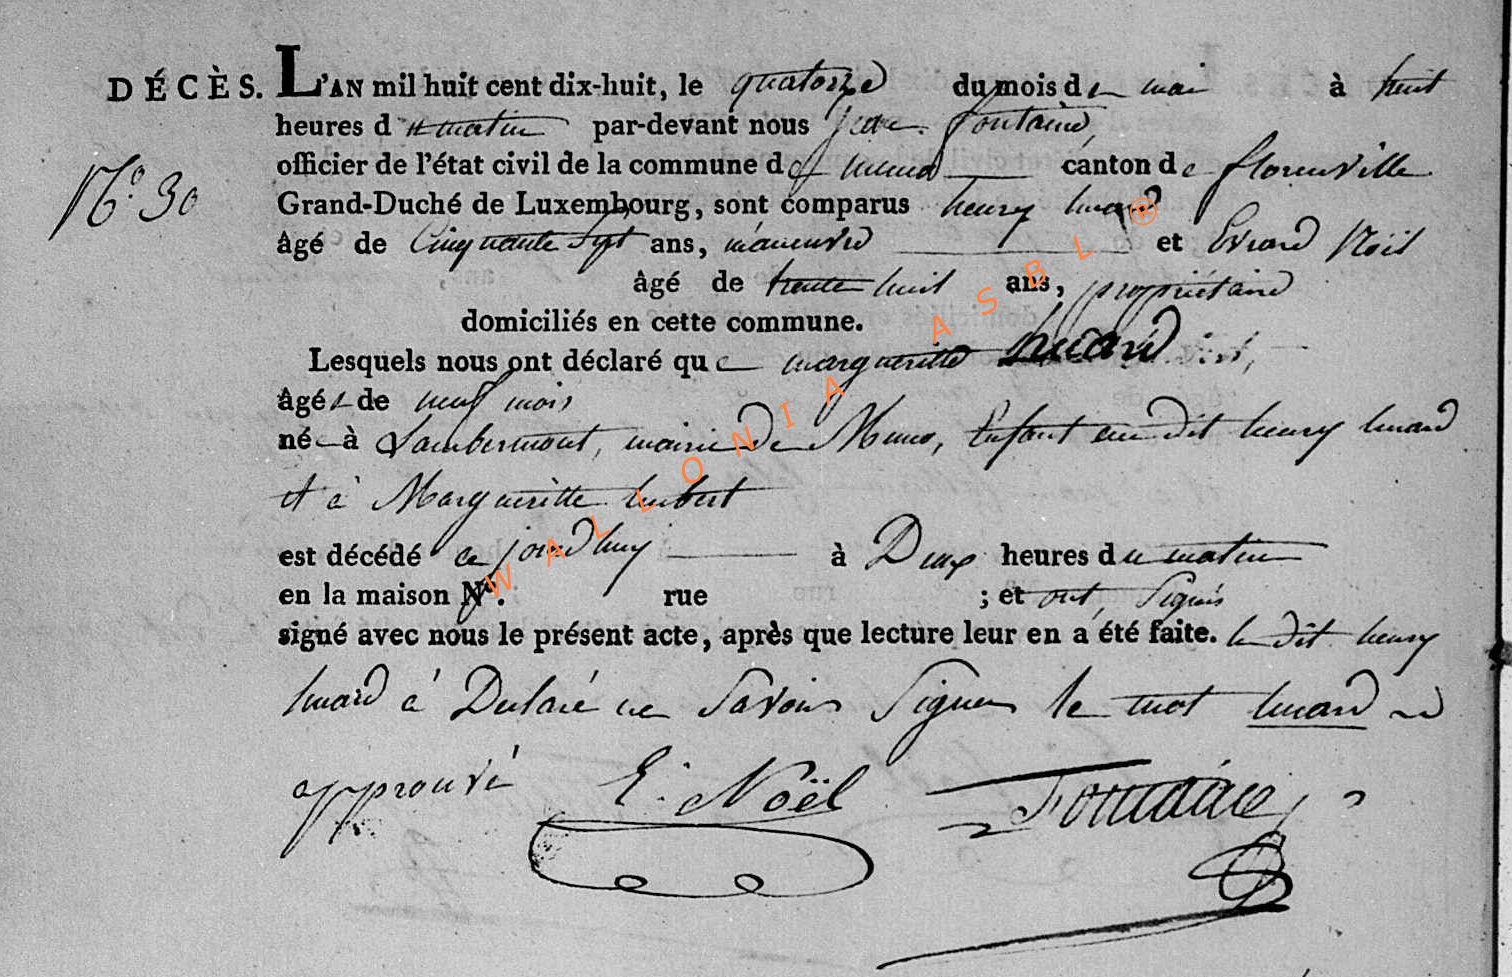 DÉCÈS. L'AN mil huit cent dix-huit, le quatorze du mois de mai à huit
heures du matin par-devant nous fontaine,
officier de l'état civil de la commune de muno canton de florenville
N° 30
Grand-Duché de Luxembourg, sont comparus henry huard
âgé de Cinquante Sept ans, manœuvre et Evrard Noël
âgé de trente huit ans, propriétaire
domiciliés en cette commune.
Lesquels nous ont déclaré que margueritte huard
âgée de neuf mois
née à Lambermont, mairie de Muno, Enfant du dit henry huard
et à Margueritte hubert
est décédé ce jourdhuy à Deux heures du matin
en la maison N°. rue ; et ont, Signés
signé avec nous le présent acte, après que lecture leur en a été faite. le dit henry
huard à Déclaré ne Savoir Signer le mot huard
approuvé E. Noël Fontaine
WALLONIA ASBL ®